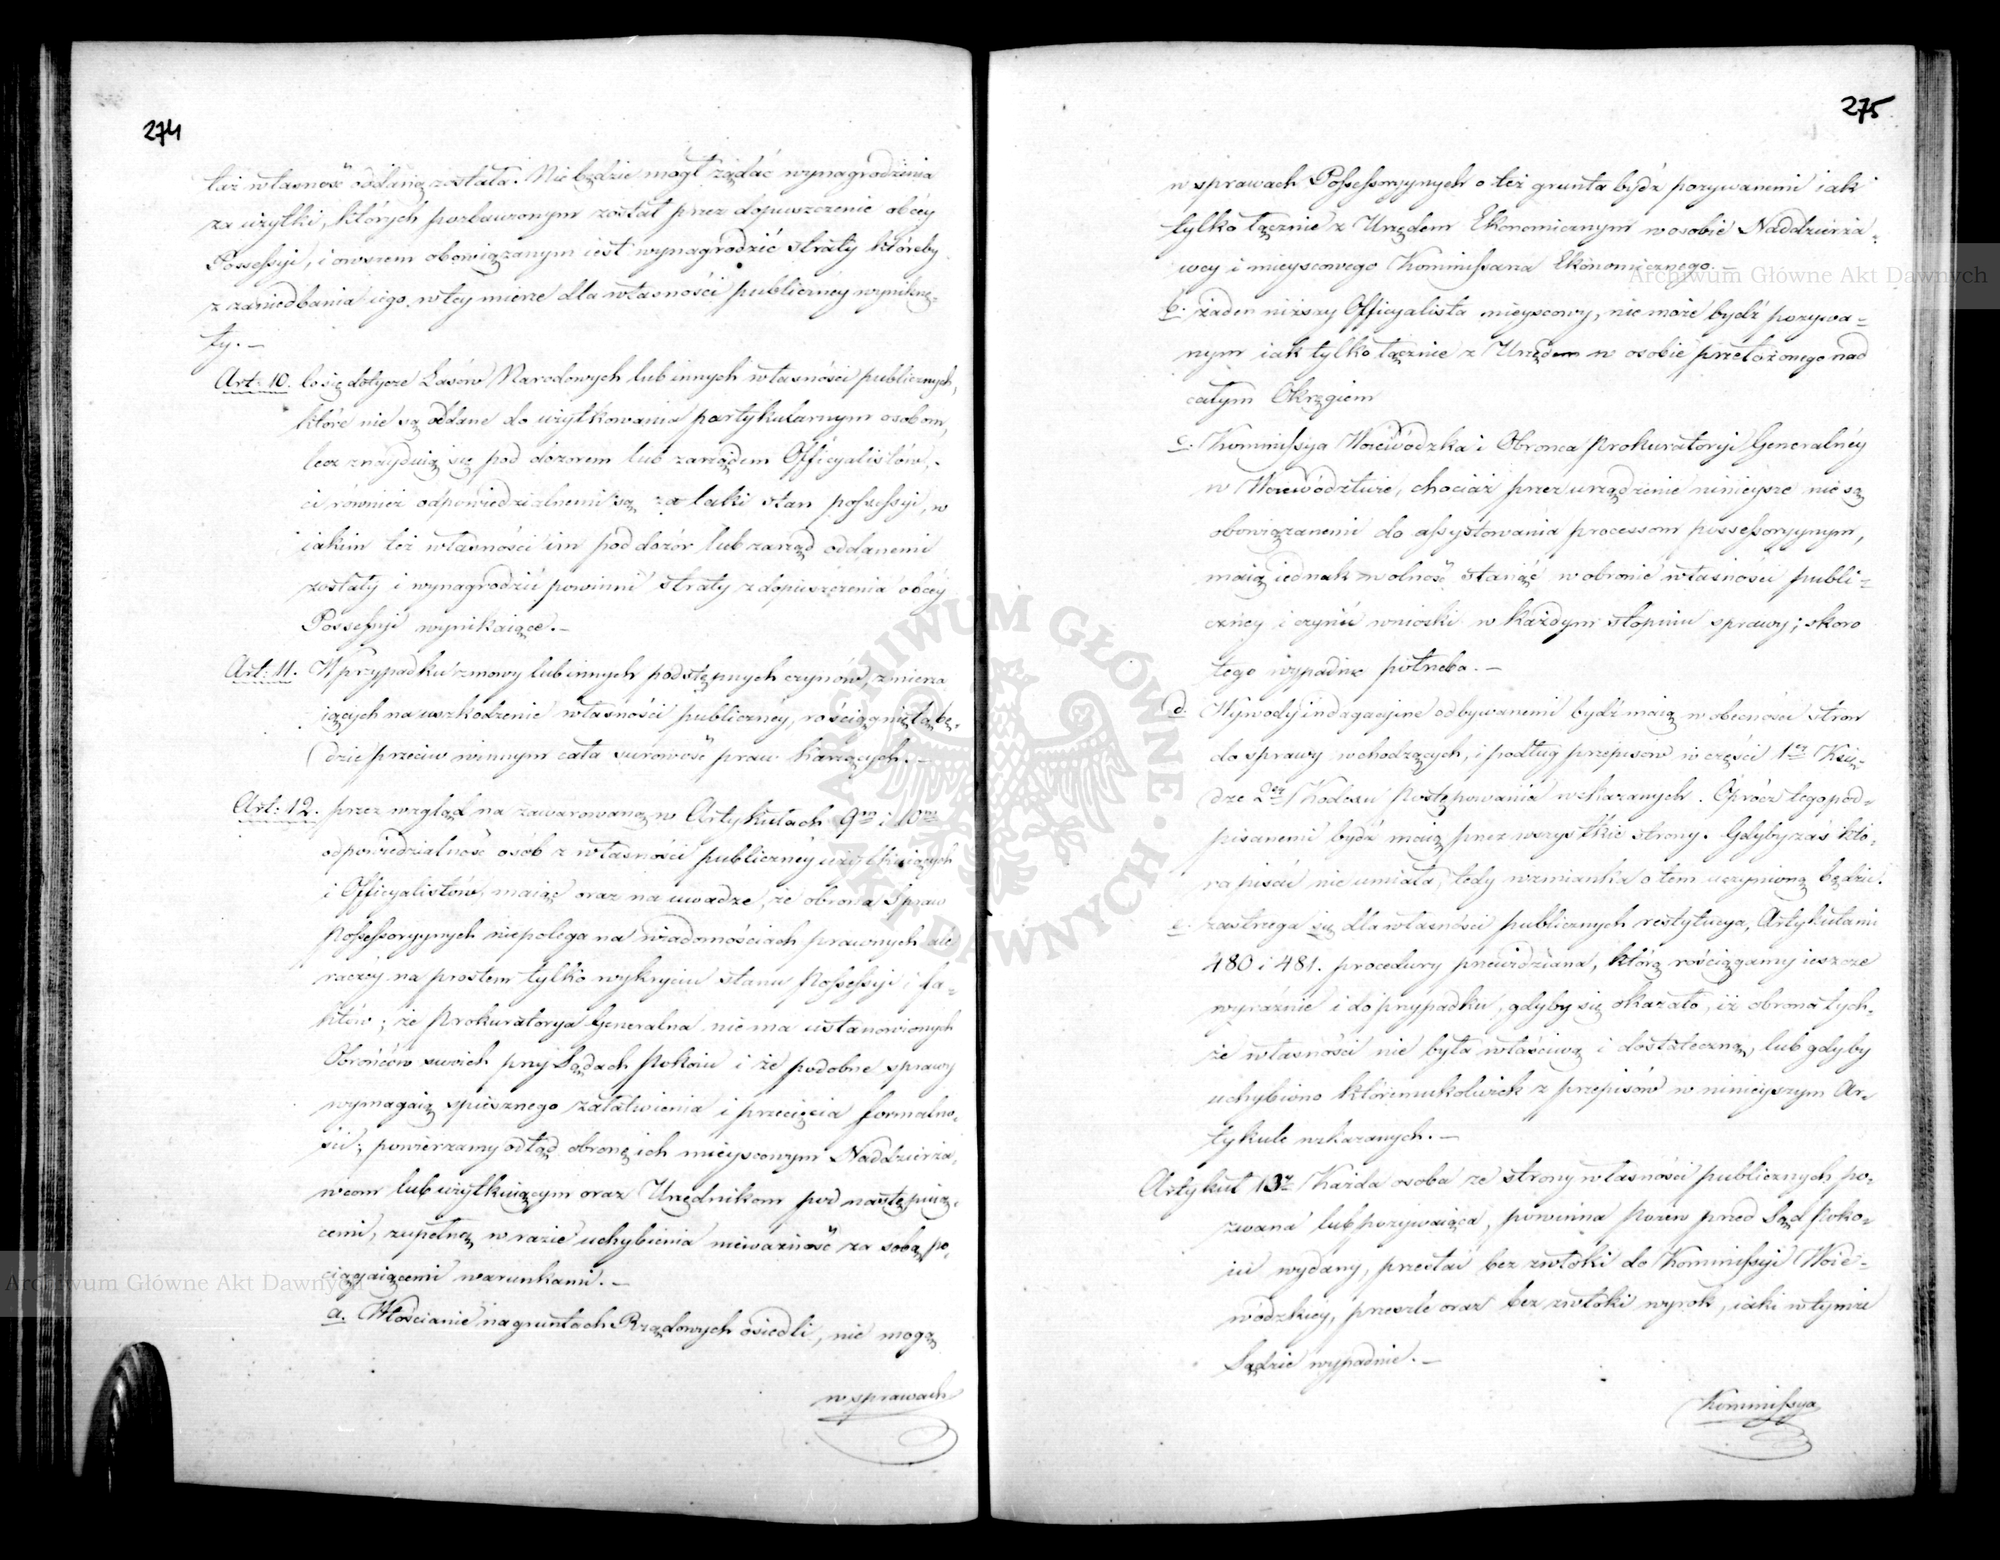 274
taż własność oddaną została. Nie będzie mógł żądać wynagrodzenia
za użytki, których pozbawionym został przez dopuszczenie obcéy
Possessyi, i owszem obowiązanym iest wynagrodzić straty któreby
z zaniedbania iego w tey mierze dla własności publicznéy wyniknę-
ły. —
Art: 10. Co się dotycze Lasów Narodowych lub innych własności publicznych,
które nie są oddane do użytkowania partykularnym osobom,
lecz znayduią się pod dozorem lub zarządem Officyalistów,
ci również odpowiedzialnemi są za taki stan possessyi, w
iakim też własności im pod dozór lub zarząd oddanemi
zostały i wynagrodzić powinni straty z dopuszczenia obcéy
Possessyi wynikaiące. —
Art: 11. W przypadku zmowy lub innych podstępnych czynów, zmierza
iących na uszkodzenie własności publicznéy, rościągniętą bę-
dzie przeciw winnym cała surowość praw karzących. —
Art: 12. przez wzgląd na zawarowaną w Artykułach 9m i 10m
odpowiedzialność osób z własności publicznéy użytkuiących
i Officyalistów, maiąc oraz na uwadze, że obrona Spraw
Possessoryynych niepolega na wiadomościach prawnych ale
raczey na prostem tylko wykryciu stanu Possessyi i fa-
któw; że Prokuratorya Generalna nie ma ustanowionych
Obrońców swoich przy Sądach Pokoiu i że podobne sprawy
wymagaią spiesznego załatwienia i przecięcia formalno-
ści; powierzamy odtąd obronę ich mieyscowym Naddzierża,
wcom lub użytkuiącym oraz Urzędnikom pod następuią,
cemi, zupełną w razie uchybienia nieważność za sobą po-
ciągaiącemi warunkami. —
a. Włościanie na gruntach Rządowych osiedli, nie mogą
w sprawach
275
w sprawach Possessoryynych o też grunta bydź pozywanemi iak
tylko łącznie z Urzędem Ekonomicznym w osobie Naddzierża-
wcy i mieyscowego Kommissarza Ekonomicznego. —
b. żaden niższy Officyalista mieyscowy, nie może bydź pozywa-
nym iak tylko łącznie z Urzędem w osobie przełożonego nad
całym Okręgiem
c. Kommissya Woiewódzka i Obronca Prokuratoryi Generalnéy
w Woiewództwie, chociaż przez urządzenie ninieysze nie są
obowiązanemi do assystowania processom possessoryynym,
maią iednak wolność stanąć w obronie własności publi-
cznéy i czynić wnioski w każdym stopniu sprawy; skoro
tego wypadnie potrzeba. —
d. Wywody indagacyine odbywanemi bydź maią w obecności stron
do sprawy wchodzących, i podług przepisów w części 1ey Księ-
dze 2ey Kodexu Postępowania wskazanych. Oprócz tego pod-
pisanemi bydź maią przez wszystkie strony. Gdyby zaś któ-
ra pisać nie umiała, tedy wzmianka o tem uczynioną będzie.
e. zastrzega się dla własności publicznych restytucya, Artykułami
480 i 481. procedury przewidziana, którą rościągamy ieszcze
wyraźnie i do przypadku, gdyby się okazało, iż obrona tych-
że własności nie była właściwą i dostateczną, lub gdyby
uchybiono któremukolwiek z przepisów w ninieyszym Ar-
tykule wskazanych. —
Artykuł 13y Każda osoba ze strony własności publicznych po-
zwana lub pozywaiąca, powinna Pozew przed Sąd Poko-
iu wydany, przesłać bez zwłoki do Kommissyi Woie-
wodzkiey, prześle oraz bez zwłoki wyrok, iaki w tymże
Sądzie wypadnie. —
Kommissya
ARCHIWUM GŁÓWNE AKT DAWNYCH
Archiwum Główne Akt Dawnych
Archiwum Główne Akt Dawnych